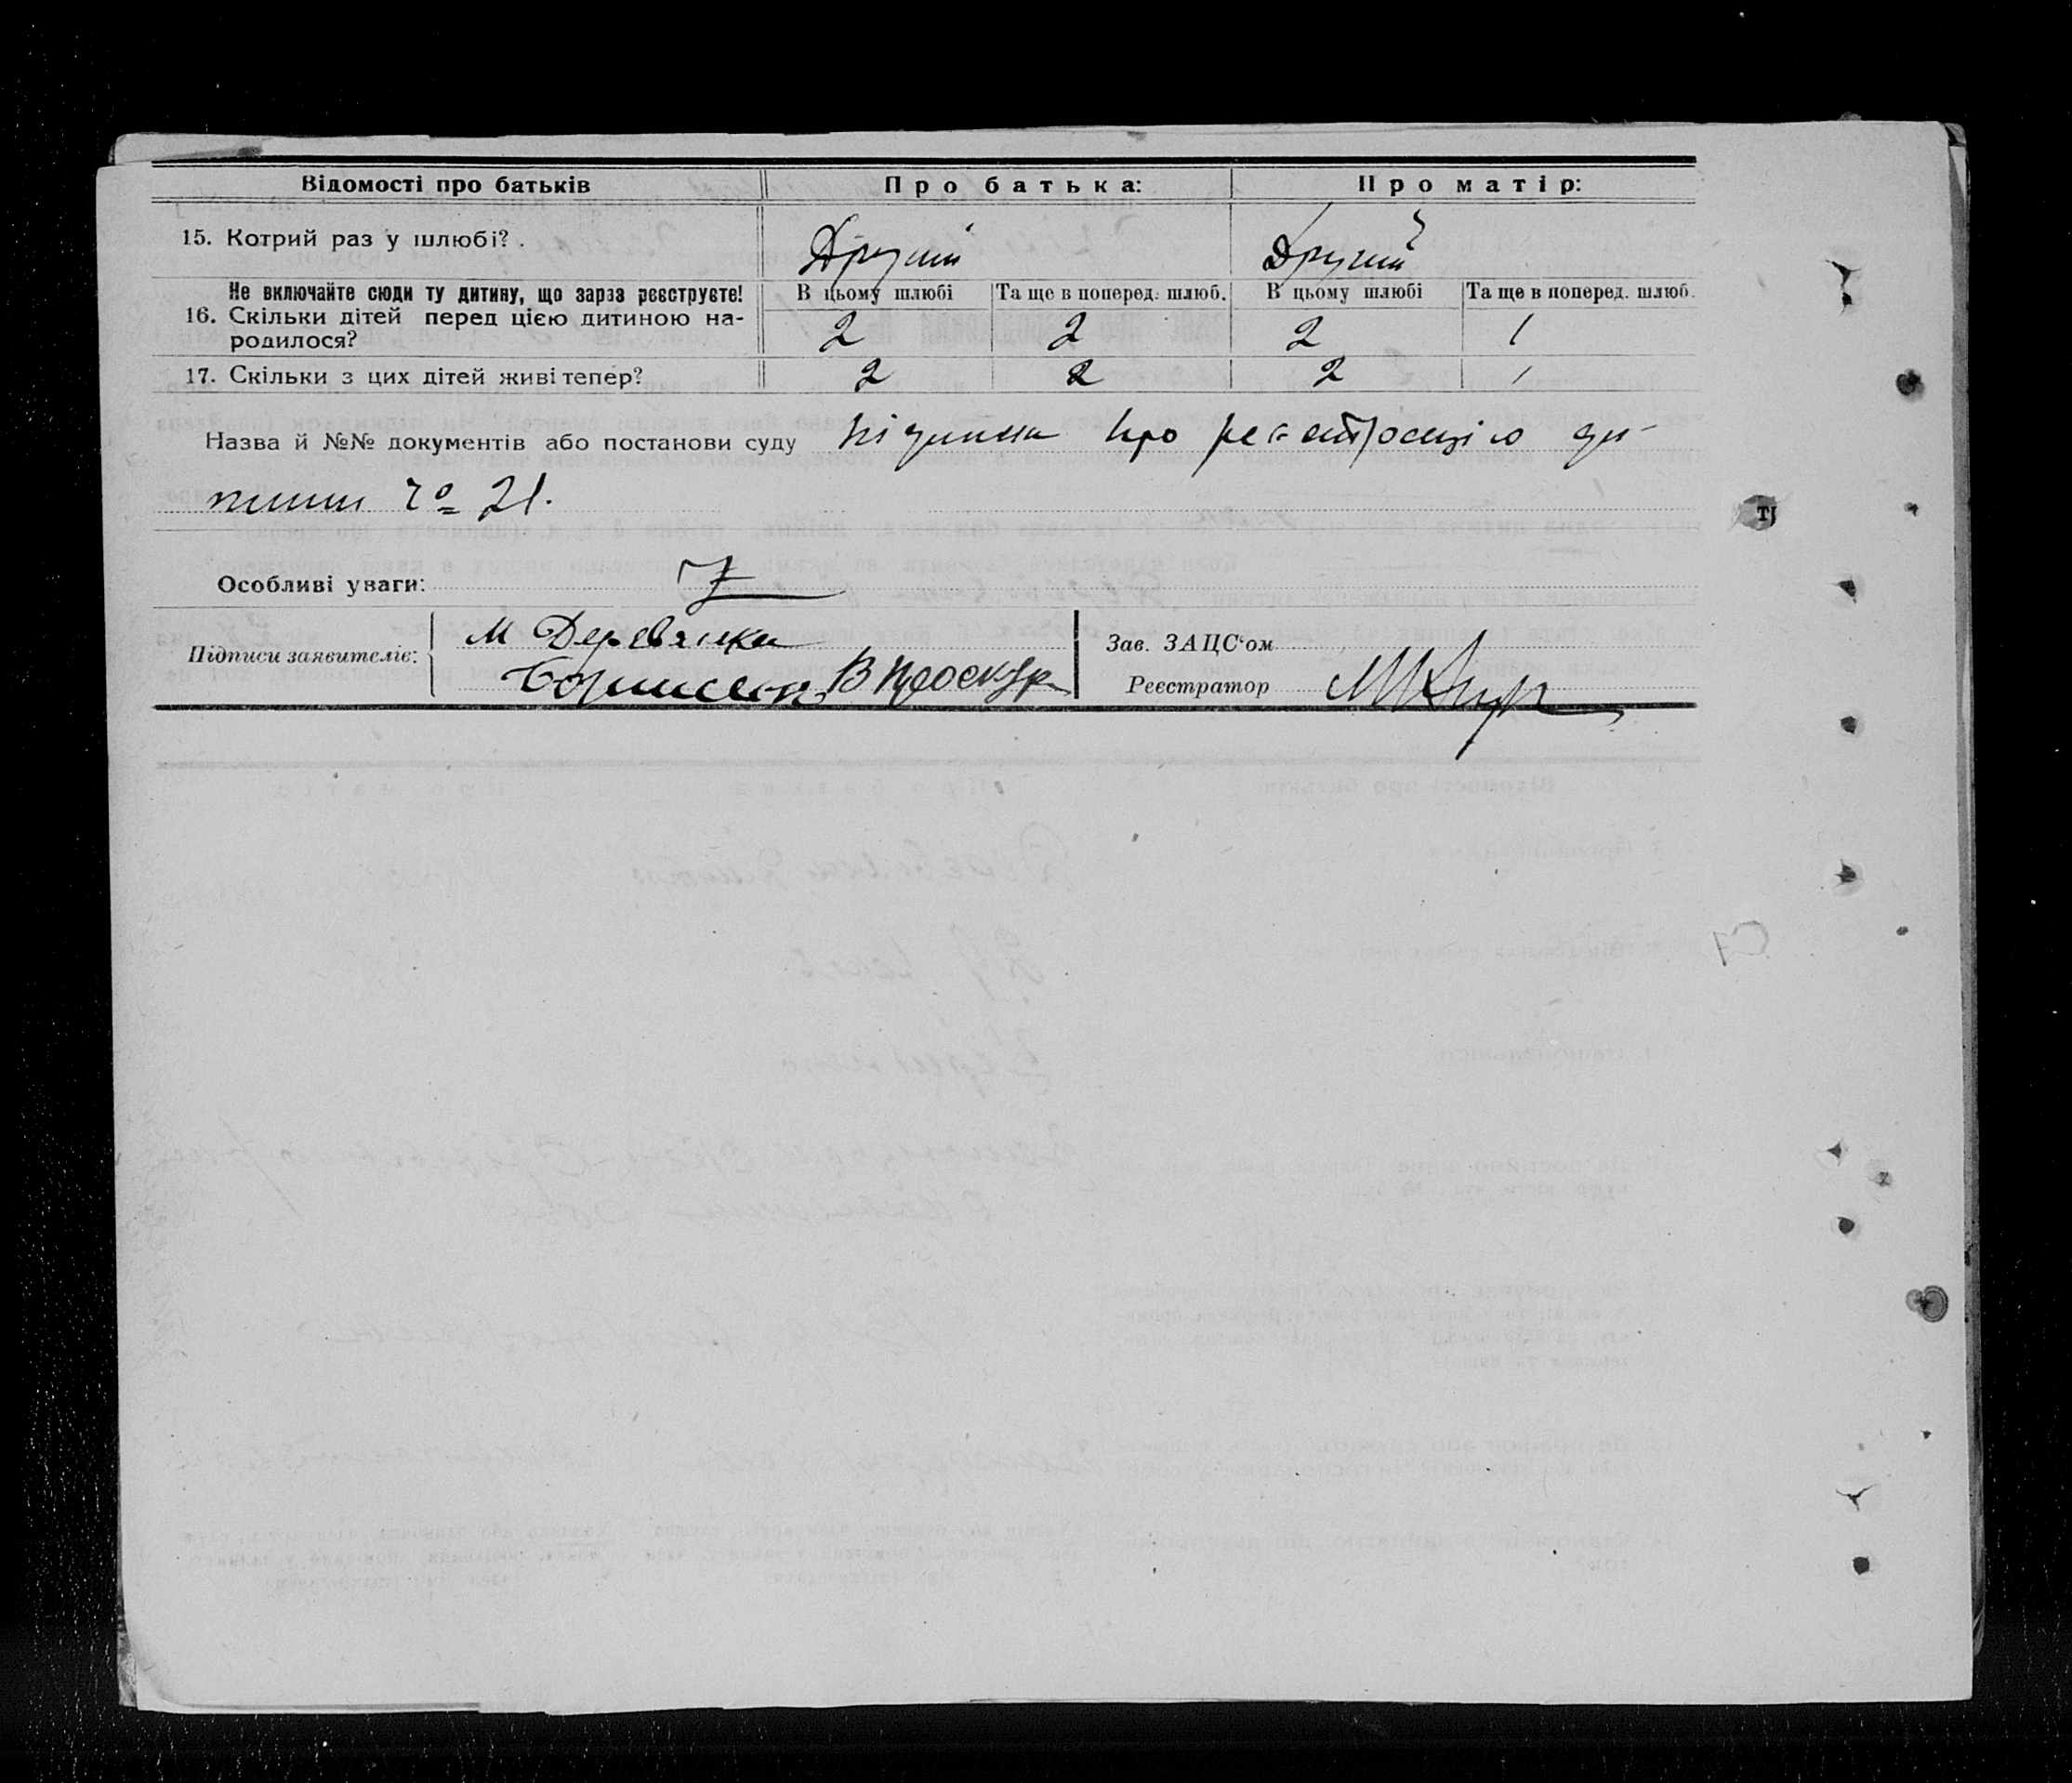 Відомості про батьків Про батька: Про матір:
15. Котрий раз у шлюбі? . Другий Другий
Не включайте сюди ту дитину, що зараз реєструєте! В цьому шлюбі Та ще в поперед. шлюб. В цьому шлюбі Та ще в поперед. шлюб.
16. Скільки дітей перед цією дитиною на-
родилося? 2 2 2 1
17. Скільки з цих дітей живі тепер? 2 2 2 1
Назва й №№ документів або постанови суду про реєстрацію ди-
тини 21.
Особливі уваги: Z
Підписи заявителів: М Деревянка
В Проскур
Зав. ЗАЦС'ом
Реєстратор